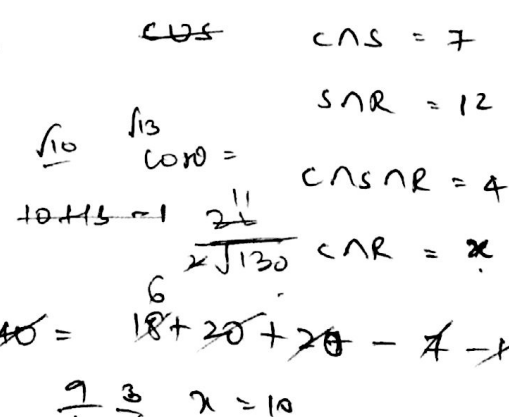 C∪S C∩S = 7
S∩R = 12
√10 √13
cosθ =
C∩S∩R = 4
10+13-1 21 11
2√130 C∩R = x
6
40 = 18 + 20 + 20 - 7 -
9 3 x = 10